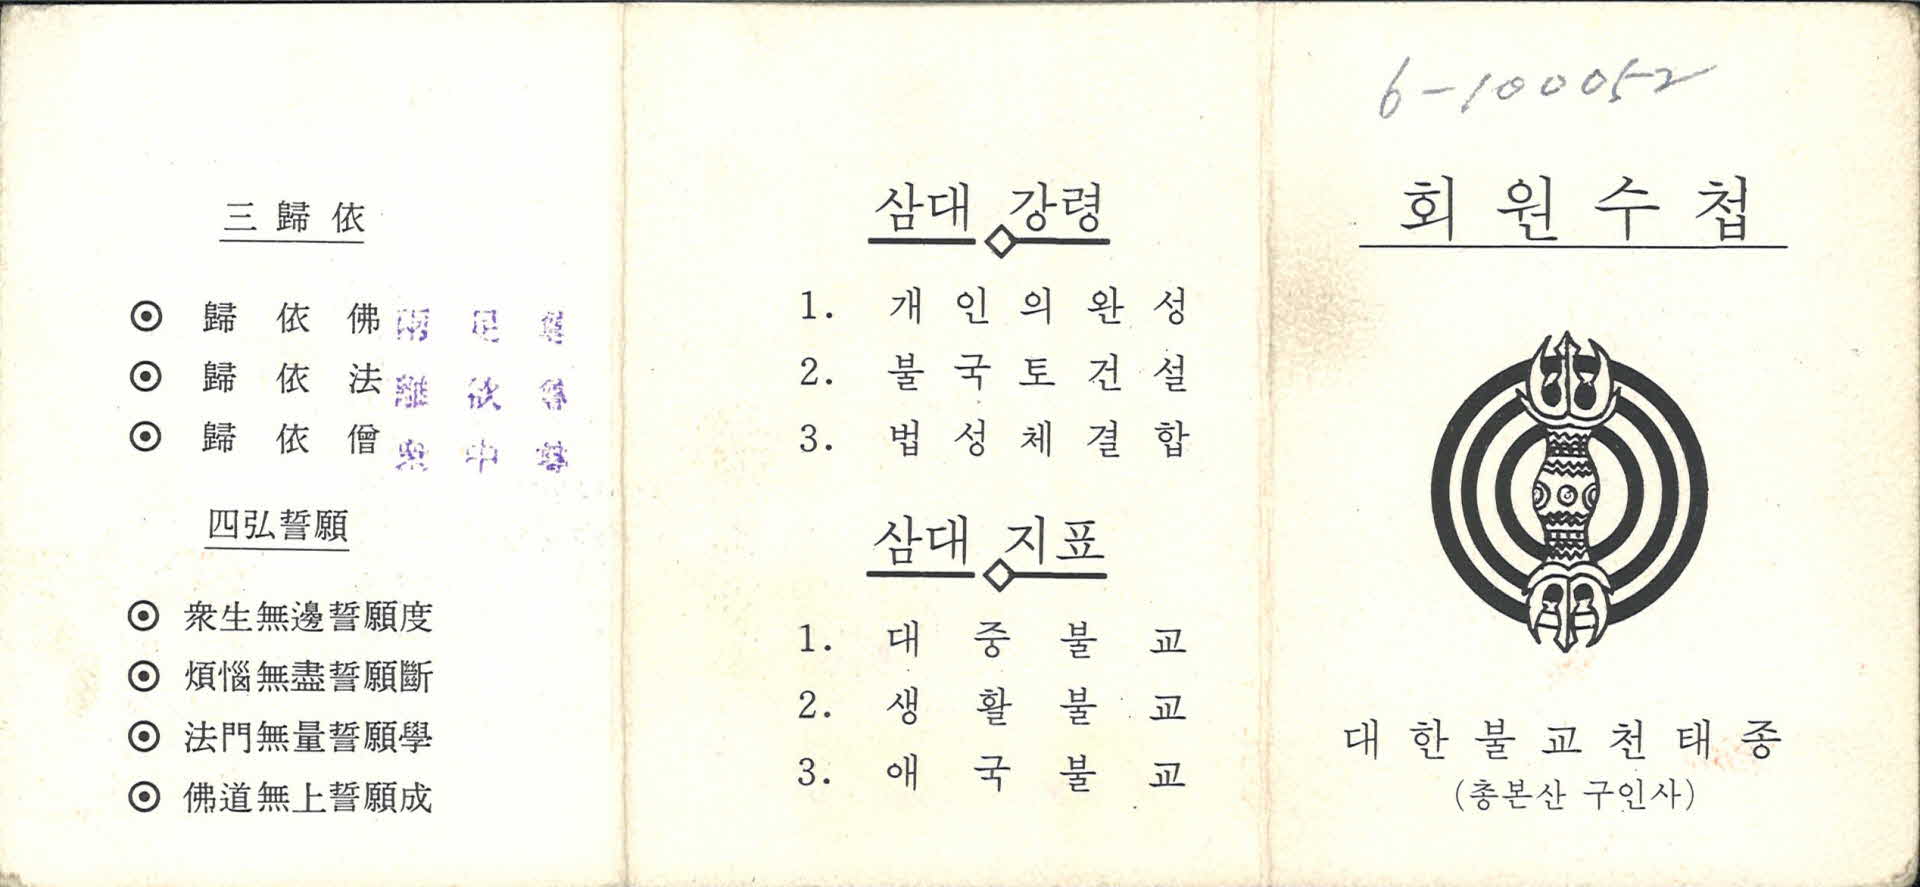 三歸依
◉ 歸依佛 兩足尊
◉ 歸依法 離欲尊
◉ 歸依僧 衆中尊
四弘誓願
◉ 衆生無邊誓願度
◉ 煩惱無盡誓願斷
◉ 法門無量誓願學
◉ 佛道無上誓願成
삼대 강령
1. 개인의완성
2. 불국토건설
3. 법성체결합
삼대 지표
1. 대중불교
2. 생활불교
3. 애국불교
6-100052
회원수첩
대한불교천태종
(총본산 구인사)